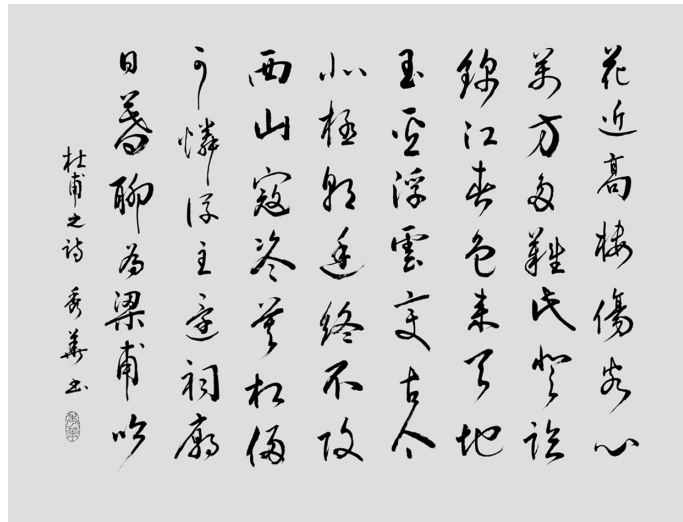 花近高樓傷客心
萬方多難此登臨
錦江春色來天地
玉壘浮雲變古今
北極朝廷終不改
西山寇盜莫相侵
可憐後主還祠廟
日暮聊為梁甫吟
杜甫之詩 秀華書